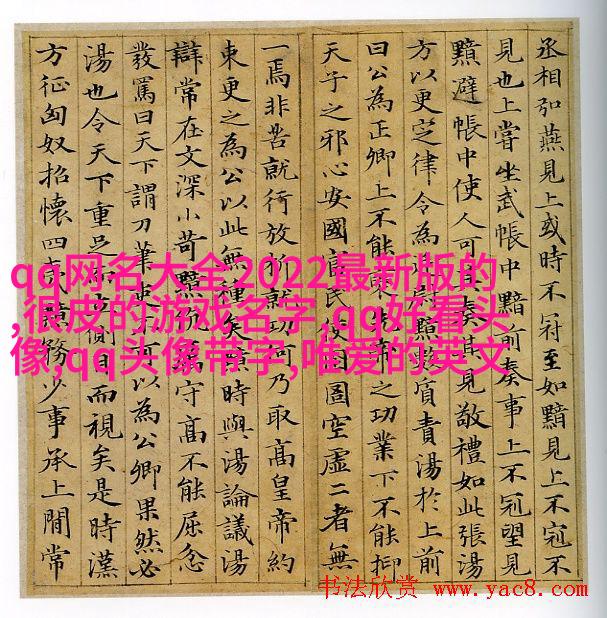 丞相弘燕見上或時不冠至如黯見上不冠不
見也上嘗坐武帳中黯前奏事上不冠望見
黯避帳中使人可其奏其見敬禮如此張湯
方以更定律令為廷尉黯數質責湯於上前
曰公為正卿上不能褒先帝之功業下不能抑
天子之邪心安國富民使囹圄空虛二者無
一焉非苦就行放析就功何乃取高皇帝約
束更之為公以此無種矣黯時與湯論議湯
辯常在文深小苛黯伉厲守高不能屈忿
發罵曰天下謂刀筆吏不可以為公卿果然必
湯也令天下重足而立側目而視矣是時漢
方征匈奴招懷四夷黯務少事承上間常
qq网名大全2022最新版的
,很皮的游戏名字,qq好看头
像,qq头像带字,唯爱的英文
书法欣赏 www.yac8.com